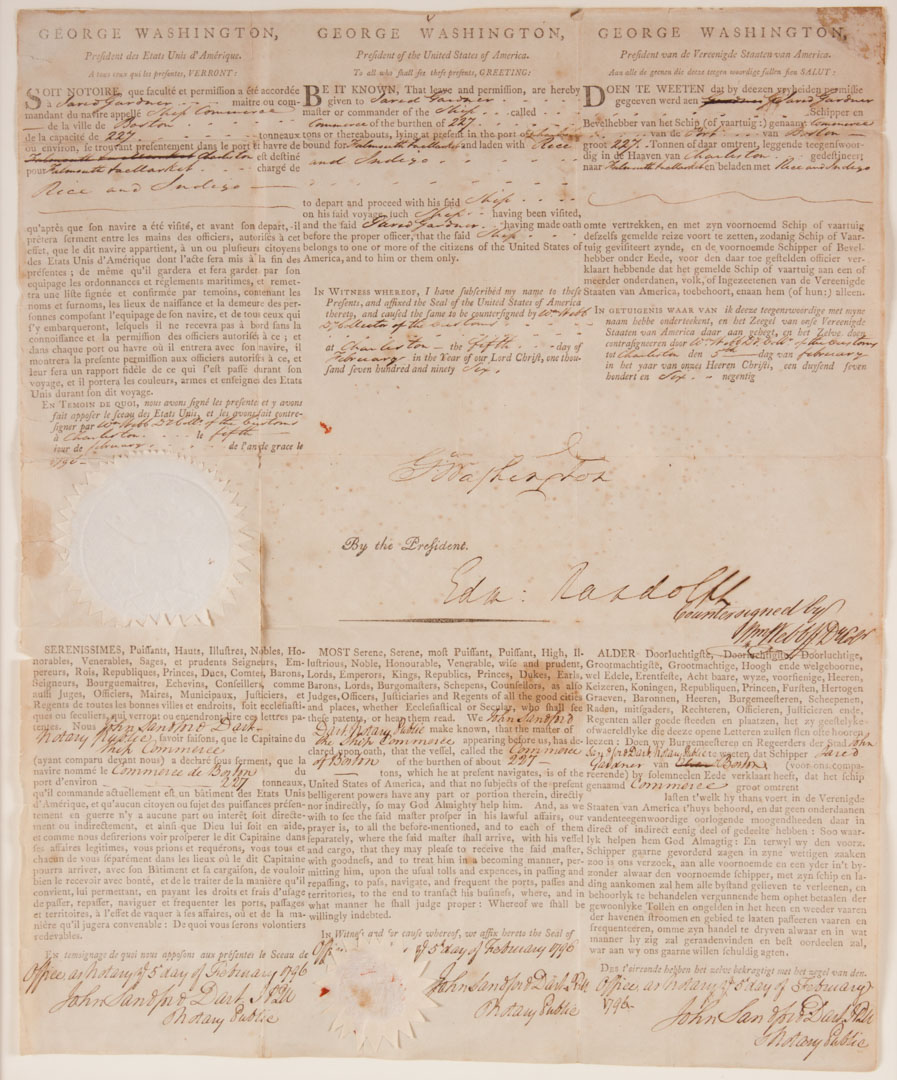 GEORGE WASHINGTON,
President des Etats Unis d'Amérique.
A tous ceux qui les presentes, VERRONT :
SOIT NOTOIRE, que faculté et permission a été accordée
à Jared Gardner maitre ou com-
mandant du navire appellé Ship Commerce
de la ville de Boston
de la capacité de 227 tonneaux
ou environ, se trouvant presentement dans le port et havre de
Charleston et destiné
pour Falmouth chargé de
Rice and Indigo
qu'après que son navire a été visité, et avant son depart, il
prêtera serment entre les mains des officiers, autorisés à cet
effet, que le dit navire appartient, à un ou plusieurs citoyens
des Etats Unis d'Amérique dont l'acte sera mis à la fin des
présentes ; de même qu'il gardera et fera garder par son
equipage les ordonnances et réglements maritimes, et remet-
tra une liste signée et confirmée par temoins, contenant les
noms et surnoms, les lieux de naissance et la demeure des per-
sonnes composant l'equipage de son navire, et de tous ceux qui
s'y embarqueront, lesquels il ne recevra pas à bord sans la
connoissance et la permission des officiers autorisés à ce ; et
dans chaque port ou havre où il entrera avec son navire, il
montrera la presente permission aux officiers autorisés à ce, et
leur fera un rapport fidèle de ce qui s'est passé durant son
voyage, et il portera les couleurs, armes et enseignes des Etats
Unis durant son dit voyage.
EN TEMOIN DE QUOI, nous avons signé les presentes et y avons
fait apposer le sceau des Etats Unis, et les avons fait contre-
signer par Wm Webb D. Coll. of the Customs
à Charleston le fifth
jour de february de l'an de grace le
1796
GEORGE WASHINGTON,
President of the United States of America.
To all who shall see these presents, GREETING :
BE IT KNOWN, That leave and permission, are hereby
given to Jared Gardner
master or commander of the Ship called
Commerce of the burthen of 227
tons or thereabouts, lying at present in the port of
bound for Falmouth and laden with Rice
and Indigo
to depart and proceed with his said Ship
on his said voyage, such Ship having been visited,
and the said Jared Gardner having made oath
before the proper officer, that the said Ship
belongs to one or more of the citizens of the United States of
America, and to him or them only.
IN WITNESS WHEREOF, I have subscribed my name to these
Presents, and affixed the Seal of the United States of America
thereto, and caused the same to be countersigned by Wm Webb
D. Collector of the Customs
at Charleston the Fifth day of
February in the Year of our Lord Christ, one thou-
sand seven hundred and ninety Six.
GEORGE WASHINGTON,
President van de Vereenigde Staaten van America.
Aan alle de geenen die deeze teegen woordige sullen sien SALUT :
DOEN TE WEETEN dat by deezen vryheiden permissie
gegeeven werd aen Jared Gardner
Schipper en
Bevelhebber van het Schip (of vaartuig :) genaamt Commerce
van de Port van Boston
groot 227 Tonnen of daar omtrent, leggende teegenswoor-
dig in de Haaven van Charleston gedestineert
naar Falmouth en beladen met Rice and Indigo
omte vertrekken, en met zyn voornoemd Schip of vaartuig
deszelfs gemelde reize voort te zetten, zodanig Schip of Vaar-
tuig gevisiteert zynde, en de voornoemde Schipper of Bevel-
hebber onder Eede, voor den daar toe gestelden officier ver-
klaart hebbende dat het gemelde Schip of vaartuig aan een of
meerder onderdanen, volk, of Ingezeetenen van de Vereenigde
Staaten van America, toebehoort, enaan hem (of hun :) alleen.
IN GETUIGENIS WAAR VAN ik deeze teegenwoordige met myne
naam hebbe onderteekent, en het Zeegel van onse Vereenigde
Staaten van America daar aan gehegt, en het Zelve doen
contrasigneeren door Wm Webb D. Coll. of the Customs
tot Charleston den 5th dag van february
in het yaar van onzes Heeren Christi, een duysend seven
hondert en Six negentig
G Washington
By the President.
Edm : Randolph
Countersigned by
Wm Webb D Col
SERENISSIMES, Puissants, Hauts, Illustres, Nobles, Ho-
norables, Venerables, Sages, et prudents Seigneurs, Em-
pereurs, Rois, Republiques, Princes, Ducs, Comtes, Barons,
Seigneurs, Bourguemaitres, Echevins, Conseillers, comme
aussi Juges, Officiers, Maires, Municipaux, Justiciers, et
Regents de toutes les bonnes villes et endroits, soit ecclesiasti-
ques ou seculiers, qui verront ou entendront lire ces lettres pa-
tentes. Nous John Sandford Dart
Notary Public favoir faisons, que le Capitaine du
Ship Commerce
(ayant comparu devant nous) a declaré sous serment, que la
navire nommé le Commerce de Boston du
port d'environ 227 tonneaux,
qu'il commande actuellement est un bâtiment des Etats Unis
d'Amérique, et qu'aucun citoyen ou sujet des puissances présente-
ment en guerre n'y a aucune part ou interêt soit directe-
ment ou indirectement, et ainsi que Dieu lui soit en aide,
et comme nous desirerions voir prosperer le dit Capitaine dans
ses affaires legitimes, vous prions et requérons, vous tous et
chacun de vous séparément dans les lieux où le dit Capitaine
pourra arriver, avec son Bâtiment et sa cargaison, de vouloir
bien le recevoir avec bonté, et de le traiter de la manière qu'il
convient, lui permettant, en payant les droits et frais d'usage
de passer, repasser, naviguer et frequenter les ports, passages
et territoires, à l'effet de vaquer à ses affaires, où et de la ma-
nière qu'il jugera convenable : De quoi vous serons volontiers
redevables.
En temoignage de quoi nous apposons aux présentes le Sceau de
Office as Notary ye 5 day of February 1796
John Sandford Dart
Notary Public
MOST Serene, Serene, most Puissant, Puissant, High, Il-
lustrious, Noble, Honourable, Venerable, wise and prudent,
Lords, Emperors, Kings, Republics, Princes, Dukes, Earls,
Barons, Lords, Burgomasters, Schepens, Counsellors, as also
Judges, Officers, Justiciaries and Regents of all the good cities
and places, whether Ecclesiastical or Secular, who shall see
these patents, or hear them read. We John Sandford
Dart Notary Public make known, that the master of
the Ship Commerce appearing before us, has de-
clared upon oath that the vessel, called the Commerce
of Boston of the burthen of about 227
tons, which he at present navigates, is of the
United States of America, and that no subjects of the present
belligerent powers have any part or portion therein, directly
nor indirectly, so may God Almighty help him. And, as we
wish to see the said master prosper in his lawful affairs, our
prayer is, to all the before-mentioned, and to each of them
separately, where the said master shall arrive, with his vessel
and cargo, that they may please to receive the said master,
with goodness, and to treat him in a becoming manner, per-
mitting him, upon the usual tolls and expences, in passing and
repassing, to pass, navigate, and frequent the ports, passes and
territories, to the end to transact his business, where, and in
what manner he shall judge proper : Whereof we shall be
willingly indebted.
In Witness and for cause whereof, we affix hereto the Seal of
Office ye 5 day of February 1796
John Sandford Dart
Notary Public
ALDER Doorluchtigste, Doorluchtige, Doorluchtigste,
Grootmachtigste, Grootmachtige, Hoogh ende welgeboorne,
wel Edele, Erentfeste, Acht baare, wyze, voorsienige, Heeren,
Keizeren, Koningen, Republiquen, Princen, Fursten, Hertogen
Graeven, Baronnen, Heeren, Burgemeesteren, Scheepenen,
Raden, mitsgaders, Rechteren, Officieren, Justicieren ende,
Regenten aller goede steeden en plaatsen, het zy geestelyke
ofwaerelldlyke die deeze opene Letteren zullen sien ofte hooren
leezen : Doen wy Burgemeesteren en Regeerders der Stad John
Sandford Dart Notary Public te weeten, dat Schipper Jared
Gardner van Boston (voor ons compa-
reerende) by solemneelen Eede verklaart heeft, dat het schip
genaamd Commerce groot omtrent
lasten t'welk hy thans voert in de Vereenigde
Staaten van America t'huys behoord, en dat geen onderdaanen
vandenteegenwoordige oorlogende moogendheeden daar in
direct of indirect eenig deel of gedeelte hebben : Soo waar-
lyk helpen hem God Almagtig : En terwyl wy den voorz.
Schipper gaarne gevorderd zagen in zyne wettigen zaaken
zoo is ons verzoek, aan alle voornoemde en een yder in't by-
zonder alwaar den voornoemde schipper, met zyn schip en la-
ding aankomen zal hem alle bystand gelieven te verleenen, en
behoorlyk te behandelen vergunnende hem ophet betaalen der
gewonlyke Tollen en ongelden in het heen en weeder vaaren
der havenen stroomen en gebied te laaten passeeren vaaren en
frequenteeren, omme zyn handel te dryven alwaar en in wat
manner hy zig zal geraadenvinden en best oordeelen zal,
war aan wy ons gaarne willen schuldig agten.
Das t'oirconde hebben het zelve bekragtigt met het zegel van den.
Office as Notary ye 5 day of February
1796
John Sandford Dart
Notary Public